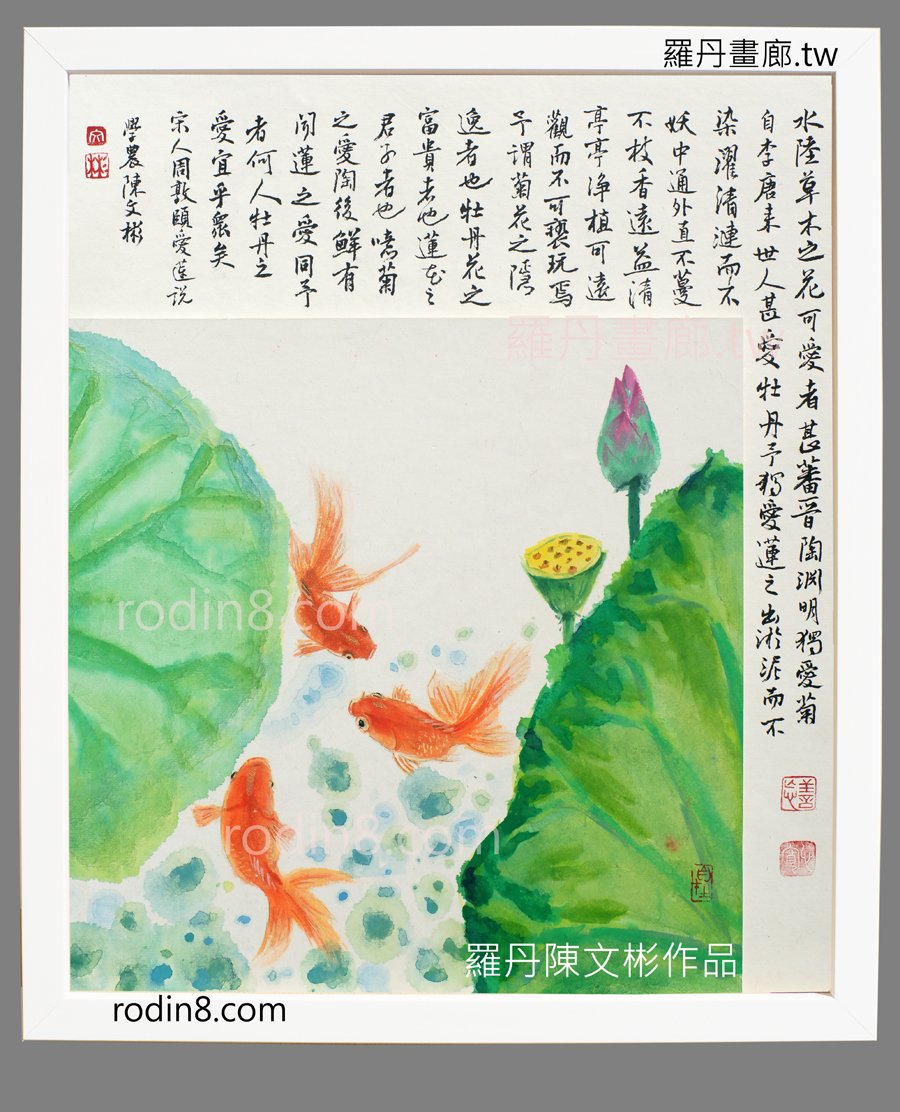 羅丹畫廊.tw
水陸草木之花可愛者甚蕃晉陶淵明獨愛菊
自李唐來世人甚愛牡丹予獨愛蓮之出淤泥而不
染濯清漣而不
妖中通外直不蔓
不枝香遠益清
亭亭净植可遠
觀而不可褻玩焉
予謂菊花之隱
逸者也牡丹花之
富貴者也蓮花之
君子者也噫菊
之愛陶後鮮有
聞蓮之愛同予
者何人牡丹之
愛宜乎眾矣
宋人周敦頤愛蓮説
學農陳文彬
文彬
羅丹畫廊.tw
rodin8.com
rodin8.com
羅丹陳文彬作品
rodin8.com